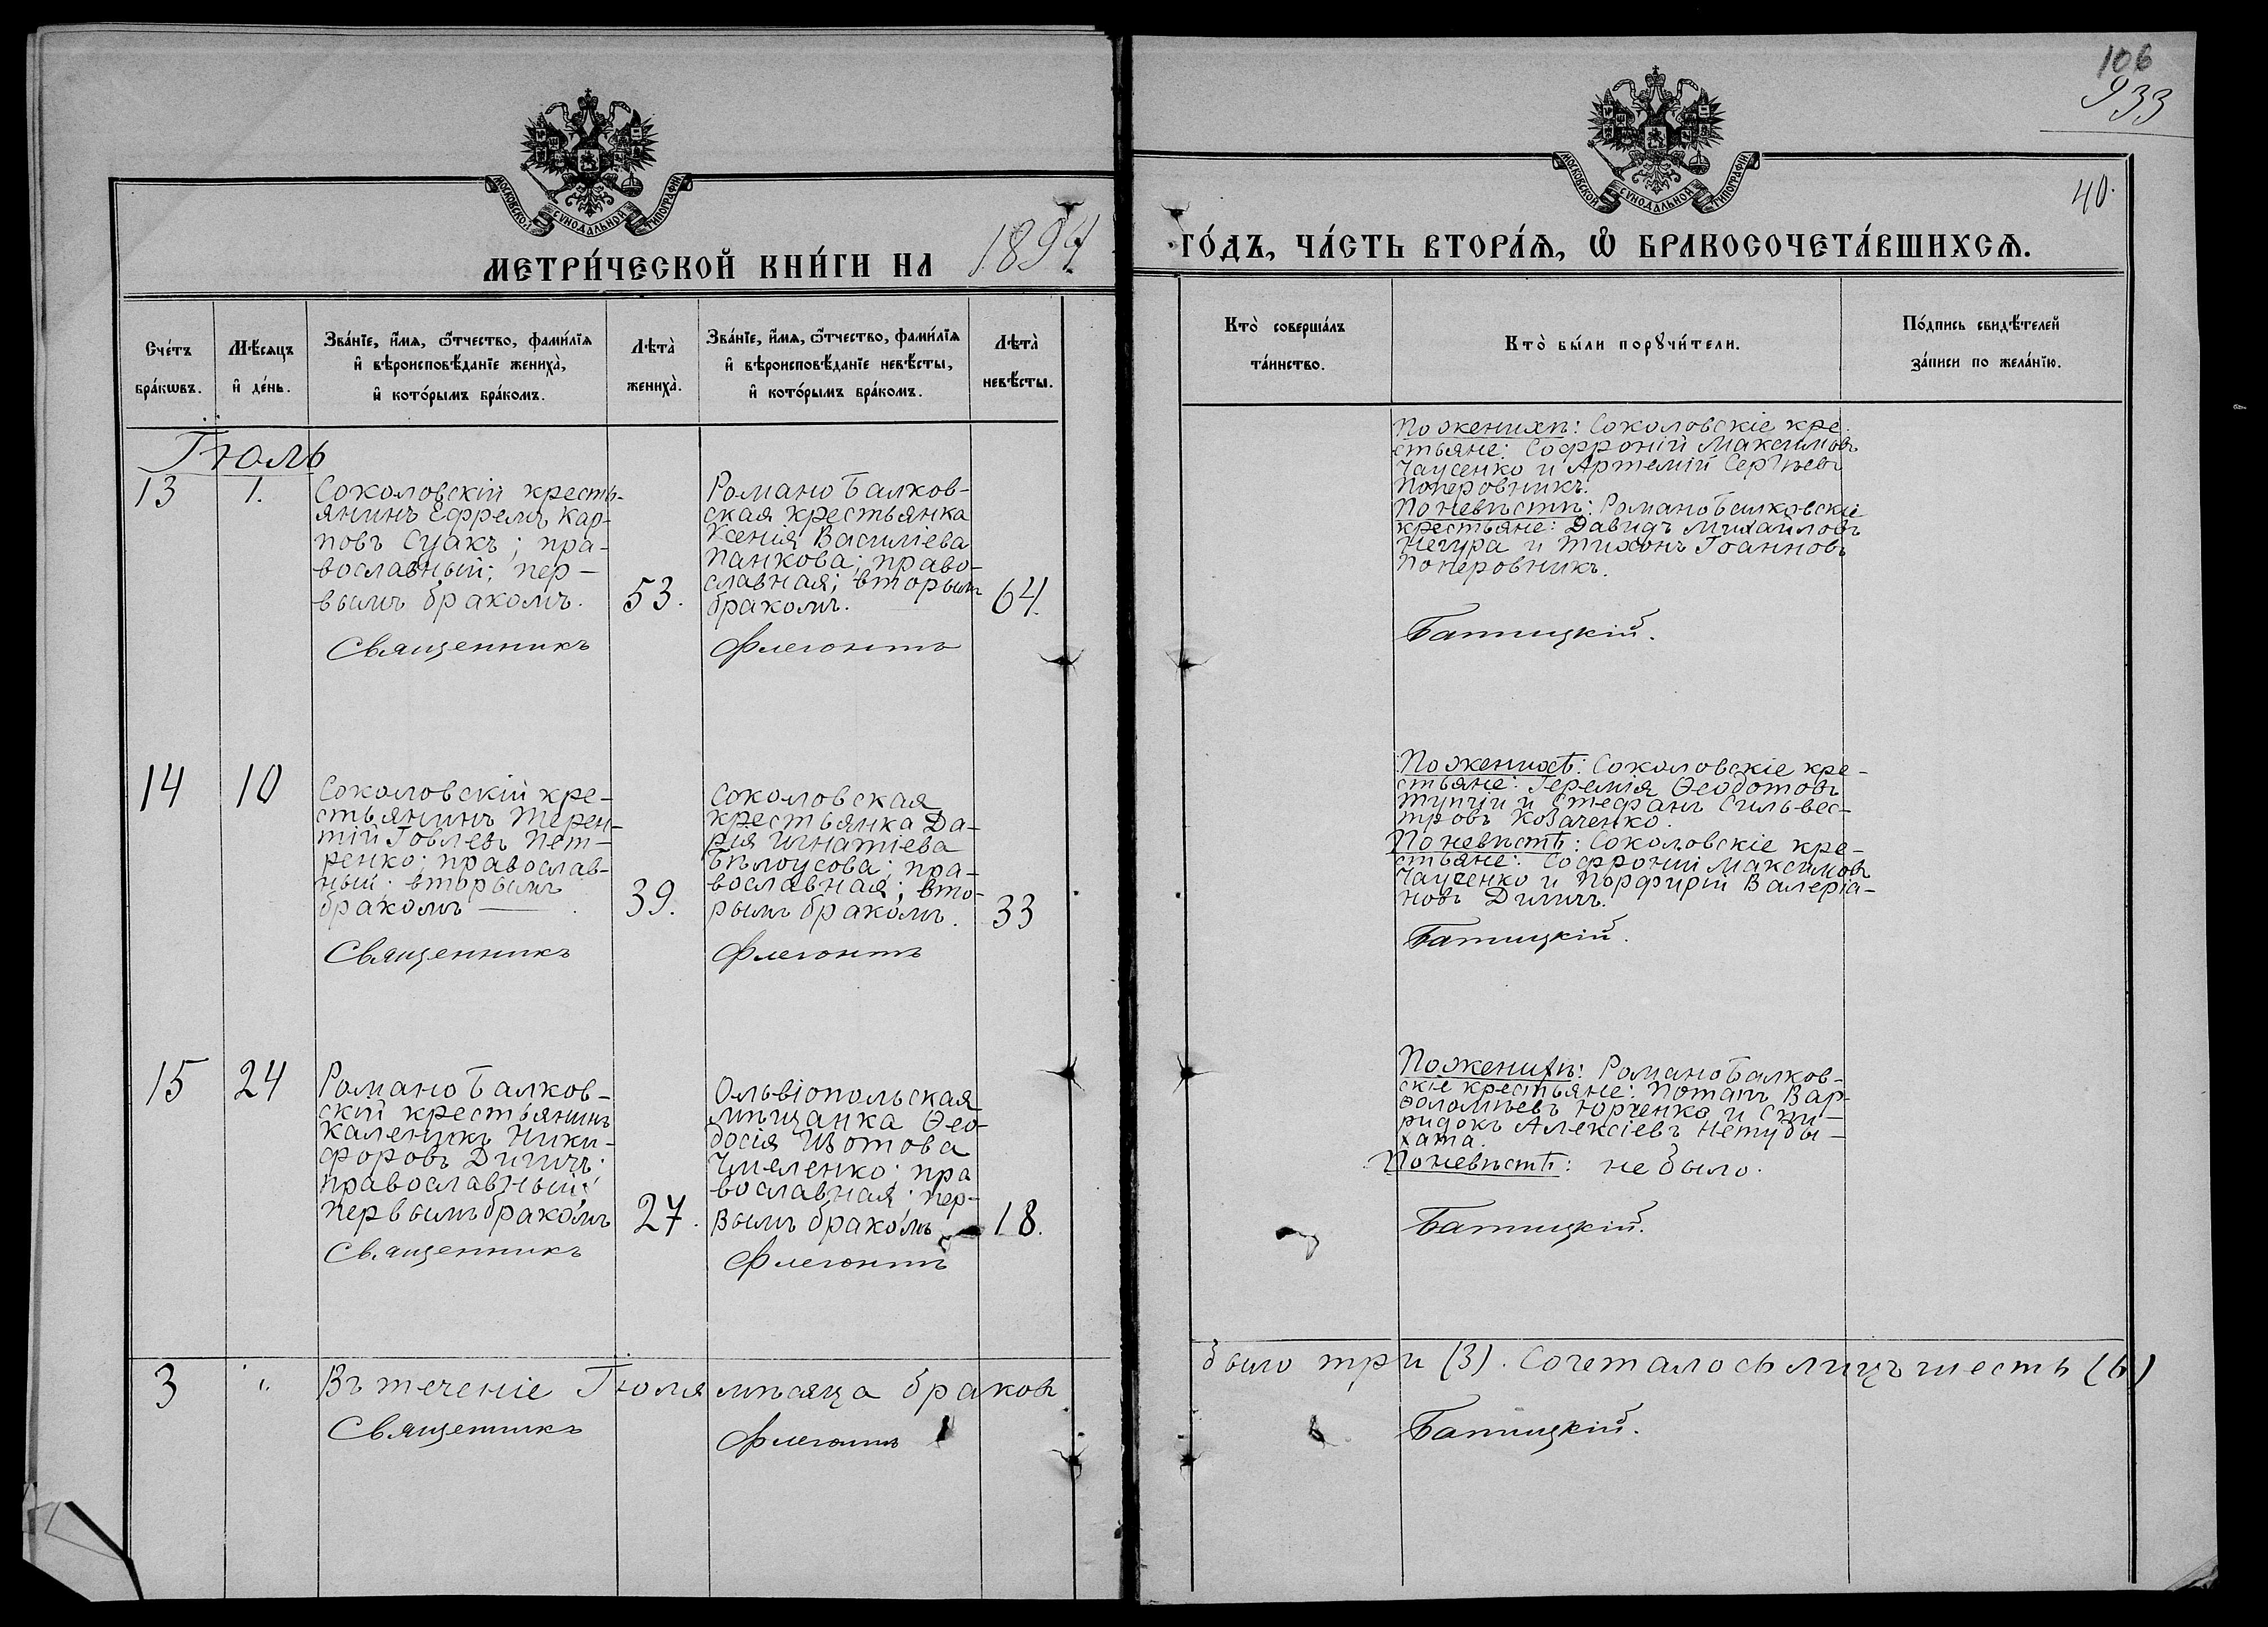 106
933
40.
МОСКОВСКОЙ СУНОДАЛЬНОЙ ТИПОГРАФІИ
МОСКОВСКОЙ СУНОДАЛЬНОЙ ТИПОГРАФІИ
МЕТРИ́ЧЕСКОЙ КНИ́ГИ НА 1894
ГО́ДЪ, ЧА́СТЬ ВТОРА́Я, Ѿ БРАКОСОЧЕТА́ВШИХСЯ.
Сче́тъ
бра́ковъ.
Мѣ́сяцъ
и де́нь.
Зва́нїе, и́мя, ѻ́тчество, фами́лїя
и вѣроисповѣ́данїе жениха̀,
и кото́рымъ бра́комъ.
Лѣта̀
жениха̀.
Зва́нїе, и́мя, ѻ́тчество, фами́лїя
и вѣроисповѣ́данїе невѣ́сты,
и кото́рымъ бра́комъ.
Лѣта̀
невѣ́сты.
Кто̀ соверша́лъ
та́инство.
Кто̀ бы́ли порꙋчи́тели.
По́дпись свидѣ́телей
за́писи по жела́нїю.
Іюль
13
1.
Соколовскій кресть-
янинъ Ефремъ Кар-
повъ Суакъ; пра-
вославный; пер-
вымъ бракомъ.
53.
Романо Балков-
ская крестьянка
Ксенія Василіева
Панкова; право-
славная; вторымъ
бракомъ.
64.
По женихѣ: Соколовскіе кре-
стьяне: Софроній Максимовъ
Чаусенко и Артемій Сергѣевъ
Поперовникъ.
По невѣстѣ: Романо Балковскіе
крестьяне: Давидъ Михайловъ
Нечура и Тихонъ Іоанновъ
Поперовникъ.
Священникъ Флегонтъ Батицкій.
14
10
Соколовскій кре-
стьянинъ Терен-
тій Іовлевъ Пет-
ренко; православ-
ный; вторымъ
бракомъ
39.
Соколовская
крестьянка Да-
рія Игнатіева
Бѣлоусова; пра-
вославная; вто-
рымъ бракомъ.
33
По женихѣ: Соколовскіе кре-
стьяне: Іеремія Ѳеодотовъ
Тупчій и Стефанъ Сильвес-
тровъ Козаченко.
По невѣстѣ: Соколовскіе кре-
стьяне: Софроній Максимовъ
Чаусенко и Порфирій Валеріа-
новъ Дигичъ.
Священникъ Флегонтъ Батицкій.
15
24
Романо Балков-
скій крестьянинъ
Каленикъ Ники-
форовъ Дигичъ;
православный;
первымъ бракомъ
27.
Ольвіопольская
мѣщанка Ѳео-
досія Изотова
Чмеленко; пра
вославная; пер-
вымъ бракомъ
18.
По женихѣ: Романо Балков-
скіе крестьяне: Потапъ Вар-
ѳоломѣевъ Юрченко и Спи-
ридонъ Алексіевъ Нетуды-
хата.
По невѣстѣ: не было.
Священникъ Флегонтъ Батицкій.
3 " Въ теченіе Іюля мѣсяца браковъ было три (3). Сочеталось лицъ шесть (6)
Священникъ Флегонтъ Батицкій.